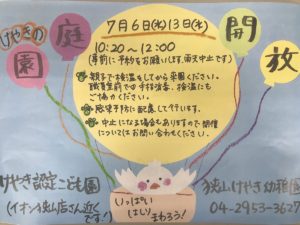 けやきの
園庭開放
7月6日(水)13日(水)
10:20~12:00
(事前に予約をお願いします。雨天中止です)
親子で検温をしてから来園ください。
職員室前での手指消毒、検温にも
ご協力ください。
感染予防に配慮して行います。
中止になる場合もありますので、開催
についてはお問い合わせください。
いっぱい
はしり
まわろう!
けやき認定こども園
(イオン狭山店さん近く
です!)
狭山けやき幼稚園
04-2953-3627